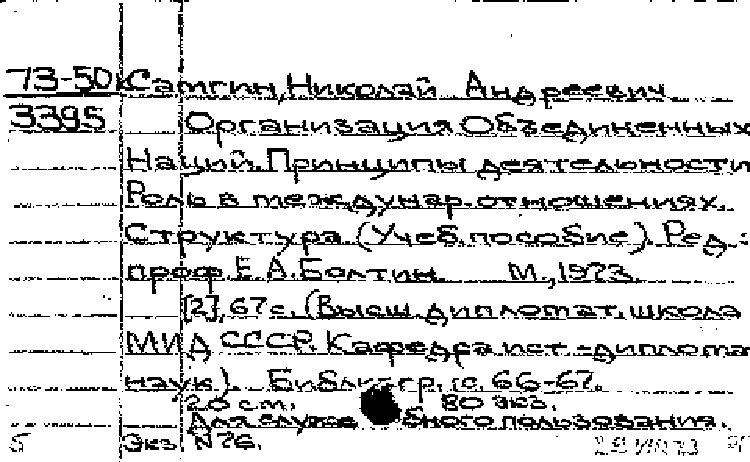 73-50 Самгин, Николай Андреевич
3395 Организация Объединенных
Наций. Принципы деятельности
Роль в междунар. отношениях.
Структура (Учеб. пособие). Ред.:
проф. Е.А. Болтин. М., 1973.
[2], 67 с. (Высш. дипломат. школа
МИД СССР. Кафедра ист.-диплома
наук). Библиогр.: с. 66-67.
20 см. 80 экз.
Для служебного пользования.
Б Экз. N 76.